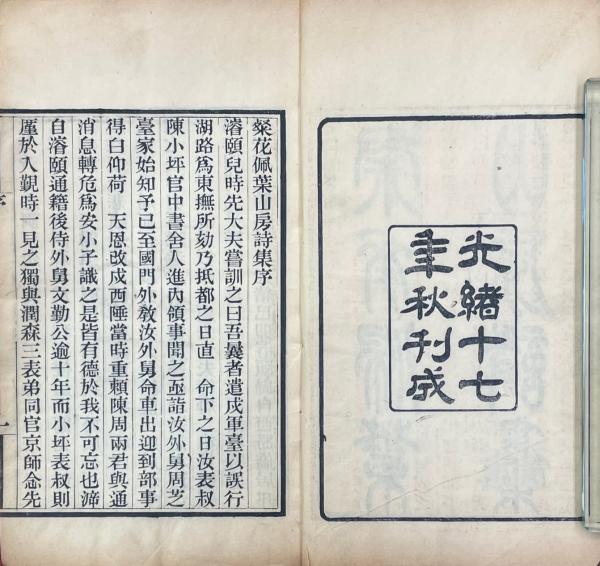 光緒十七
年秋刊成
粲花佩葉山房詩集序
濬頤兒時先大夫嘗訓之曰吾曩者遣戍軍臺以誤行
湖路爲東撫所劾乃抵都之日直　命下之日汝表叔
陳小坪官中書舍人進內領事聞之亟詣汝外舅周芝
臺家始知予已至國門外敎汝外舅命車出迎到部事
得白仰荷　天恩改戍西陲當時重賴陳周兩君與通
消息轉危爲安小子識之是皆有德於我不可忘也
自濬頤通籍後侍外舅文勤公逾十年而小坪表叔則
厪於入覲時一見之獨與潤森三表弟同官京師念先
序
一